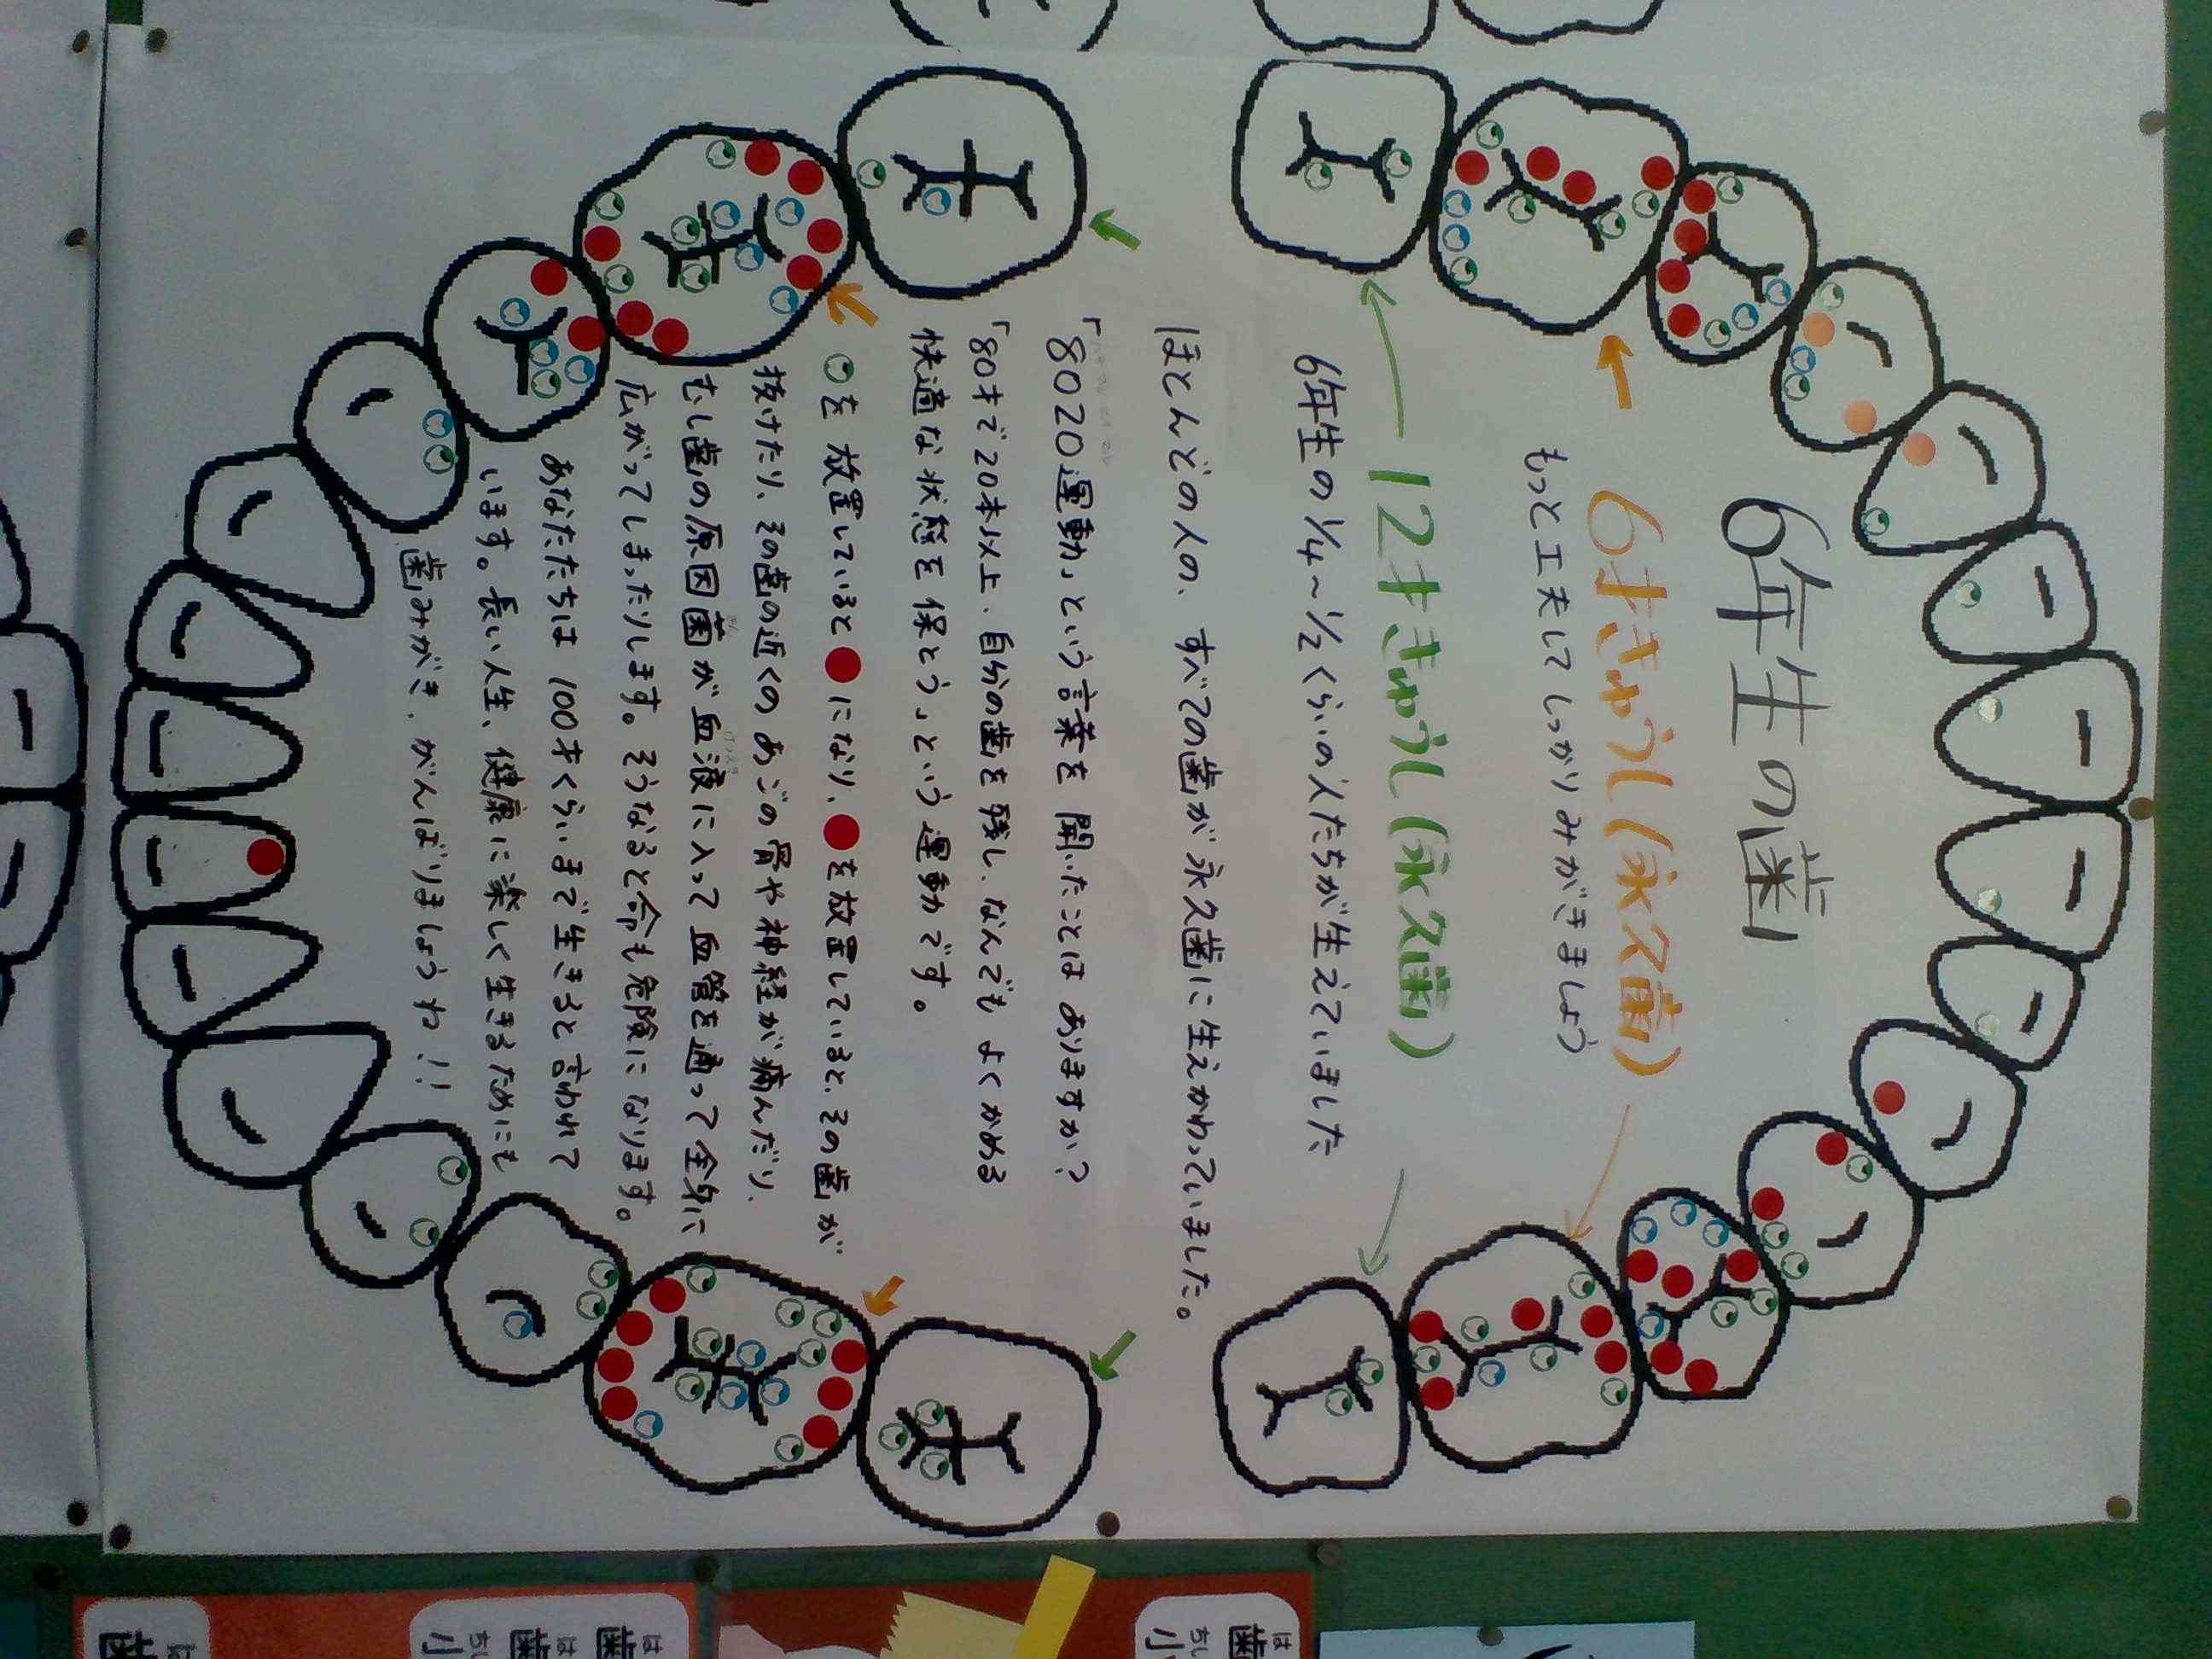 6年生の歯
6才きゅうし(永久歯)
もっと工夫してしっかりみがきましょう
12才きゅうし(永久歯)
6年生の1/4~1/2くらいの人たちが生えていました
ほとんどの人の、すべての歯が永久歯に生えかわっていました。
「8020運動」という言葉を聞いたことはありますか?
「80才で20本以上、自分の歯を残し、なんでもよくかめる
快適な状態を保とう」という運動です。
を放置していると●になり、●を放置していると、その歯が
抜けたり、その歯の近くのあごの骨や神経が痛んだり、
むし歯の原因菌が血液に入って血管を通って全身に
広がってしまったりします。そうなると命も危険になります。
あなたたちは100才くらいまで生きると言われて
います。長い人生、健康に楽しく生きるためにも
歯みがき、がんばりましょうね!!